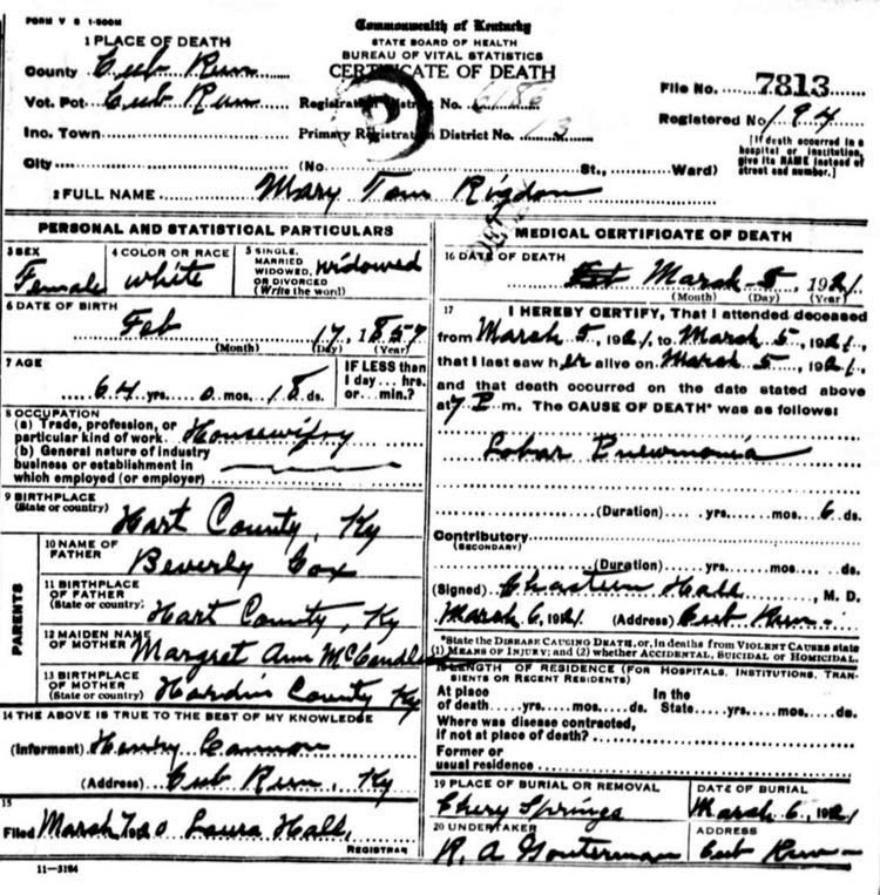 FORM V S 1-500M
Commonwealth of Kentucky
STATE BOARD OF HEALTH
BUREAU OF VITAL STATISTICS
CERTIFICATE OF DEATH
1 PLACE OF DEATH
County Cub Run
Vot. Pct Cub Run Registration District No.
Inc. Town Primary Registration District No. 13
City (No St., Ward)
File No. 7813
Registered No 194
[If death occurred in a
hospital or institution,
give its NAME instead of
street and number.]
2 FULL NAME Mary Tom Rigdon
PERSONAL AND STATISTICAL PARTICULARS
3 SEX
Female
4 COLOR OR RACE
white
5 SINGLE,
MARRIED
WIDOWED,
OR DIVORCED
(Write the word)
widowed
6 DATE OF BIRTH
Feb 17, 1857
(Month) (Day) (Year)
7 AGE
64 yrs. 0 mos. 18 ds.
IF LESS than
1 day... hrs.
or... min.?
8 OCCUPATION
(a) Trade, profession, or
particular kind of work Housewifry
(b) General nature of industry
business or establishment in
which employed (or employer)
9 BIRTHPLACE
(State or country)
Hart County, Ky
PARENTS
10 NAME OF
FATHER
Beverly Cox
11 BIRTHPLACE
OF FATHER
(State or country)
Hart County, Ky
12 MAIDEN NAME
OF MOTHER Margret Ann McCandless
13 BIRTHPLACE
OF MOTHER
(State or country)
Hardin County Ky
14 THE ABOVE IS TRUE TO THE BEST OF MY KNOWLEDGE
(Informant) Cannon
(Address) Cub Run, Ky
15
Filed March 7 20 Laura Hall,
REGISTRAR
11-3184
MEDICAL CERTIFICATE OF DEATH
16 DATE OF DEATH
March 5, 1921
(Month) (Day) (Year)
17 I HEREBY CERTIFY, That I attended deceased
from March 5, 1921, to March 5, 1921,
that I last saw her alive on March 5, 1921,
and that death occurred on the date stated above
at 7 P m. The CAUSE OF DEATH* was as follows:
Lobar Pneumonia
(Duration) yrs. mos. 6 ds.
Contributory
(SECONDARY)
(Duration) yrs. mos. ds.
(Signed) Chasteen Hall, M. D.
March 6, 1921 (Address) Cub Run
*State the DISEASE CAUSING DEATH, or, in deaths from VIOLENT CAUSES state
(1) MEANS OF INJURY; and (2) whether ACCIDENTAL, SUICIDAL or HOMICIDAL.
18 LENGTH OF RESIDENCE (FOR HOSPITALS, INSTITUTIONS, TRAN-
SIENTS OR RECENT RESIDENTS)
At place In the
of death yrs. mos. ds. State yrs. mos. ds.
Where was disease contracted,
if not at place of death?
Former or
usual residence
19 PLACE OF BURIAL OR REMOVAL
Chery Springs
DATE OF BURIAL
March 6, 1921
20 UNDERTAKER
R. A Gonterman
ADDRESS
Cub Run